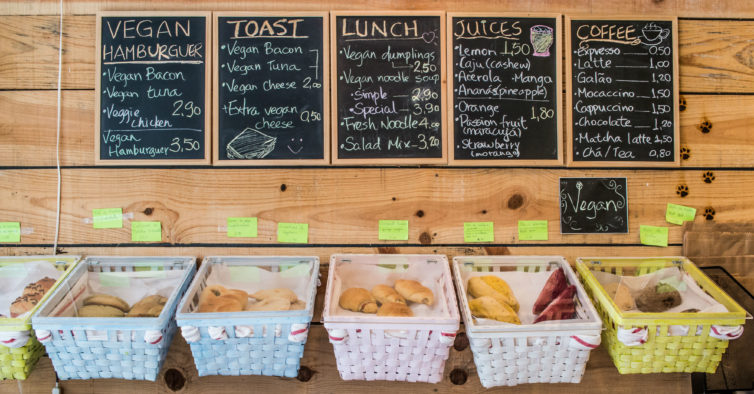 VEGAN
HAMBURGUER
• Vegan Bacon
• Vegan tuna
• Veggie
chicken
2,90
Vegan
Hamburguer 3,50
TOAST
• Vegan Bacon
• Vegan Tuna
• Vegan cheese 2,00
• Extra vegan
cheese 0,50
LUNCH
• Vegan dumplings
2,50
Vegan noodle soup
• Simple 2,90
• Special 3,90
• Fresh Noodle 4.00
• Salad Mix 3,20
JUICES
• Lemon 1,50
• Caju (cashew)
• Acerola • Manga
• Ananás (pineapple)
• Orange
• Passion fruit
(maracujá)
• Strawberry
(morango)
1,80
COFFEE
• Espresso 0,50
• Latte 1,00
• Galão 1,20
• Mocaccino 1,50
• Cappuccino 1,50
• Chocolate 1,50
• Matcha latte 1,50
• Chá/Tea 0,80
Vegan